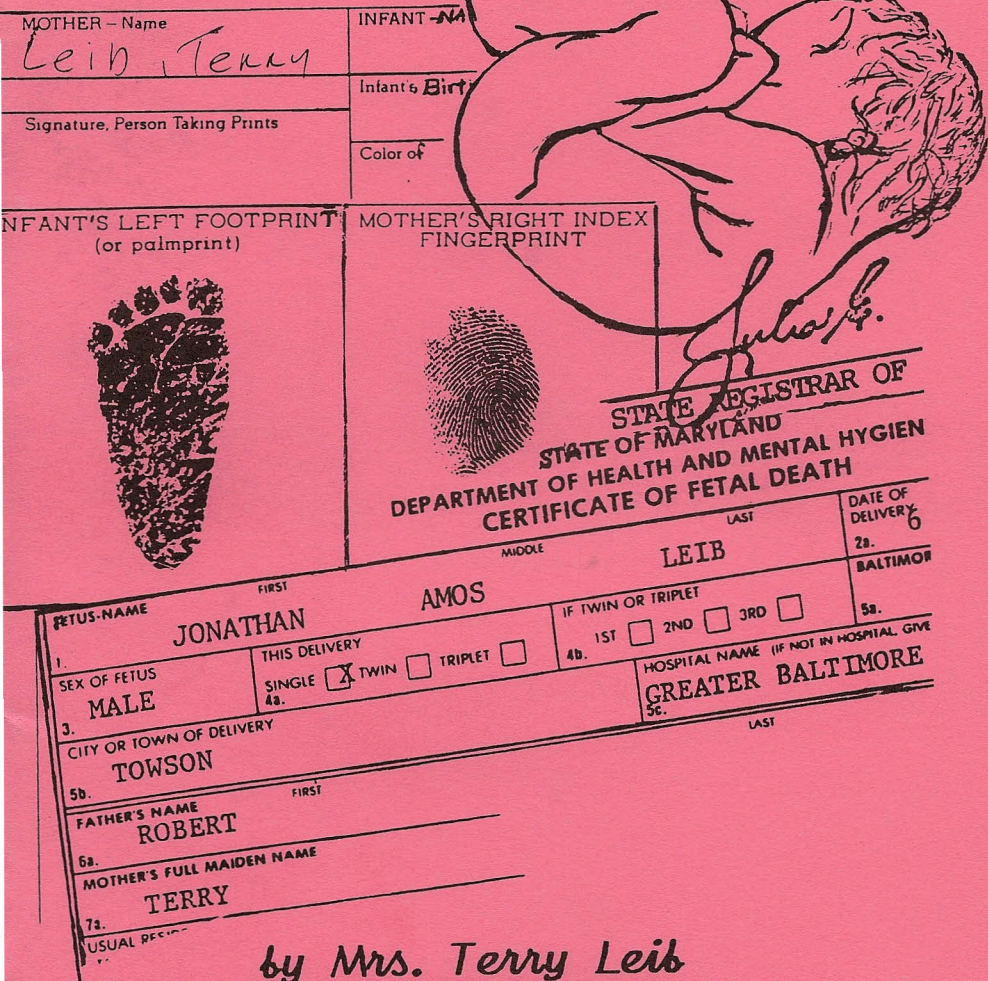 MOTHER – Name
Leib, Terry
INFANT –NA
Infant's Birt
Signature, Person Taking Prints
Color of
NFANT'S LEFT FOOTPRINT
(or palmprint)
MOTHER'S RIGHT INDEX
FINGERPRINT
Julia G.
STATE REGISTRAR OF
STATE OF MARYLAND
DEPARTMENT OF HEALTH AND MENTAL HYGIEN
CERTIFICATE OF FETAL DEATH
FETUS-NAME FIRST MIDDLE LAST
1. JONATHAN AMOS LEIB
DATE OF
DELIVERY
2a. 6
SEX OF FETUS
3. MALE
THIS DELIVERY
SINGLE X TWIN TRIPLET
4a.
IF TWIN OR TRIPLET
1ST 2ND 3RD
4b.
BALTIMOR
5a.
CITY OR TOWN OF DELIVERY
5b. TOWSON
HOSPITAL NAME (IF NOT IN HOSPITAL, GIVE
GREATER BALTIMORE
5c.
FATHER'S NAME FIRST LAST
6a. ROBERT
MOTHER'S FULL MAIDEN NAME
7a. TERRY
USUAL
by Mrs. Terry Leib